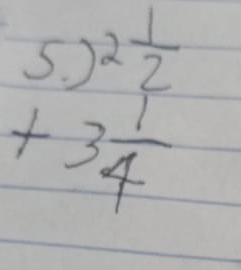 5.) 2 1/2
+ 3 1/4